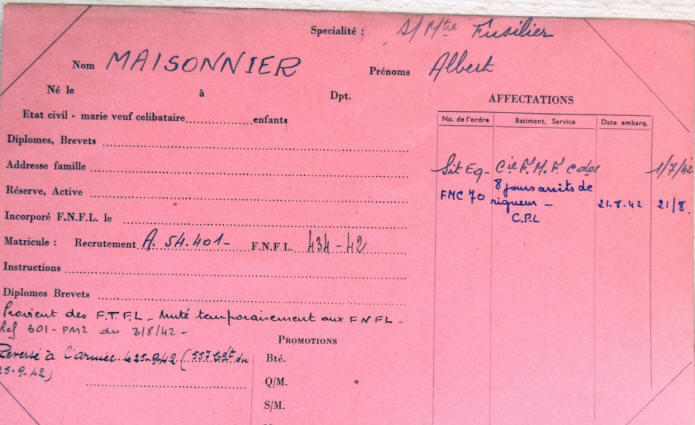 Specialité : S/Mtre Fusilier
Nom MAISONNIER Prénoms Albert
Né le à Dpt.
Etat civil - marie veuf celibataire enfants
Diplomes, Brevets
Addresse famille
Réserve, Active
Incorporé F.N.F.L. le
Matricule : Recrutement A. 54.401- F.N.F.L. 434-42
Instructions
Diplomes Brevets
Provient des F.T.F.L - Muté temporairement aux FNFL -
Ref 301 - PM2 du 3/8/42 -
Reversé à l'armée le 25-9-42 ( du
25.9.42)
PROMOTIONS
Bté.
Q/M.
S/M.
AFFECTATIONS
No. de l'ordre Batiment, Service Date embarq.
Sit Eq - Cie F.M.F. 1/7/42
FMC 70 8 jours arrêts de
rigueur - 21.8.42 21/8.
C.P.L